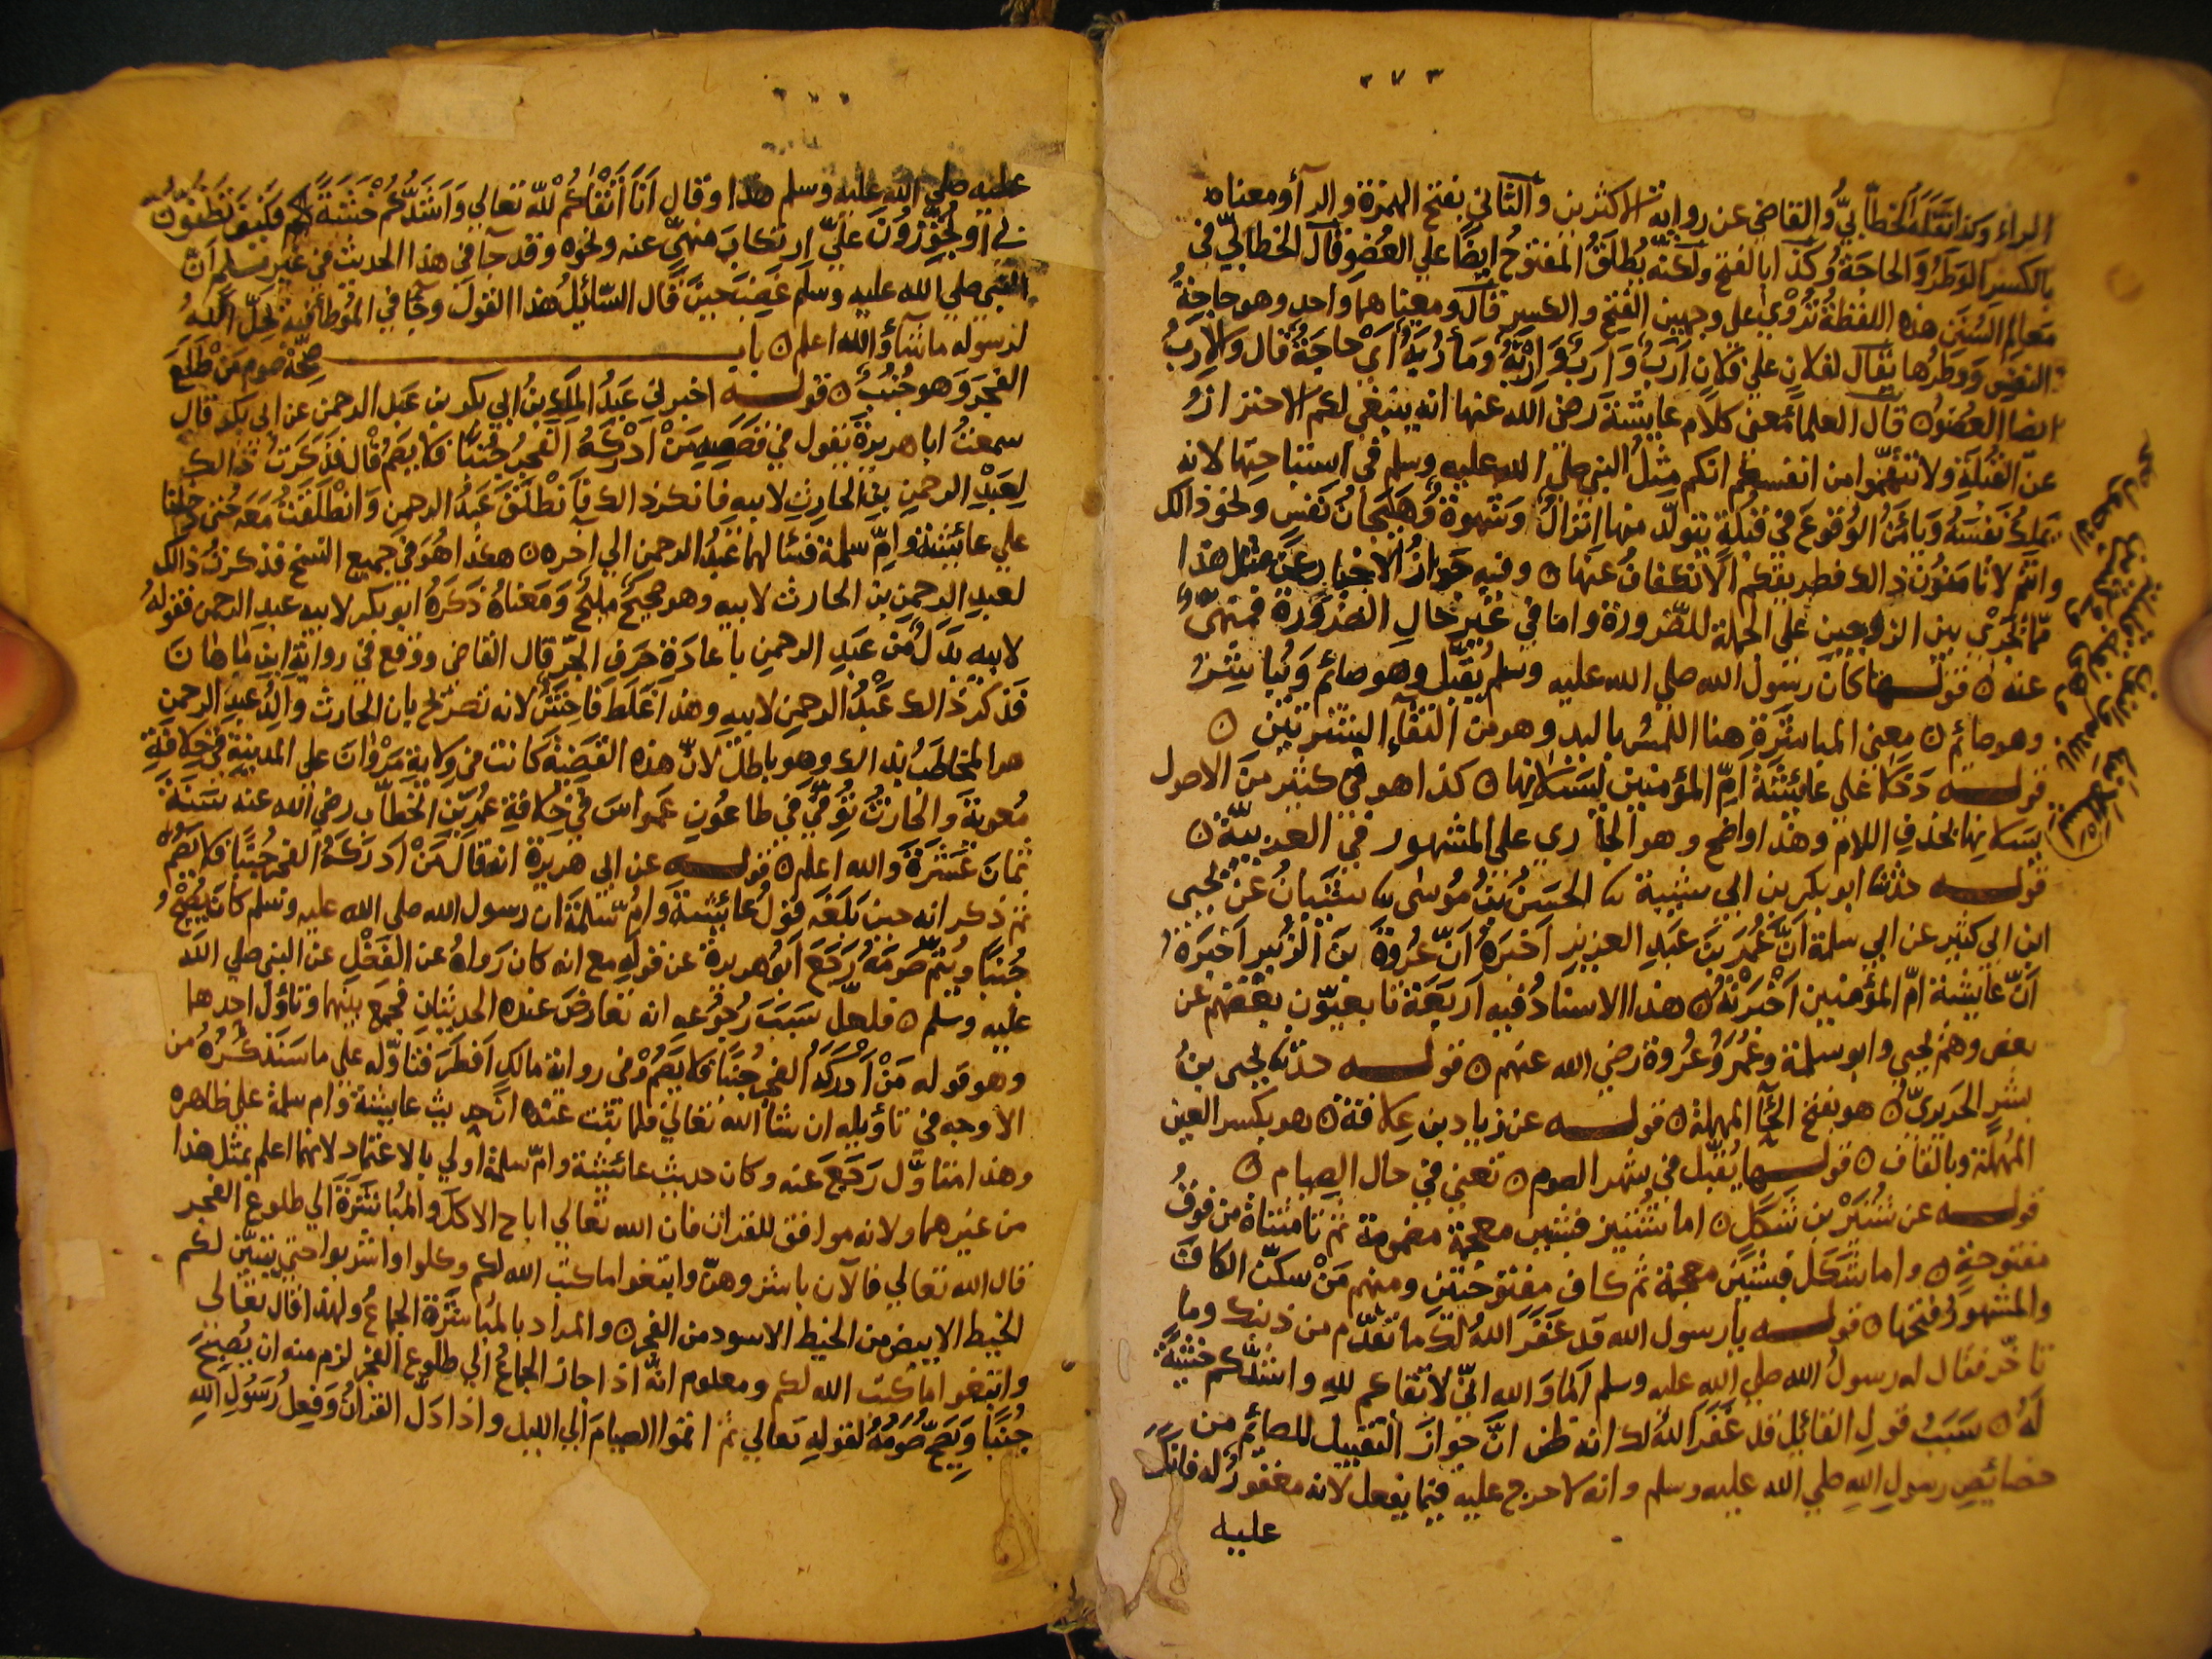 ٣٧٣
الراء وكذا نقله الخطابيُّ والقاضي عن رواية الاكثرين والثاني بفتح الهمزة والرآء ومعناه
بالكسر الوَطَرُ والحاجَةُ وكذا بالفتح ولكنه يُطلَقُ المفتوحُ ايضًا علي العُضو قال الخطابيُّ في
مَعالم السُنَن هذه اللفظةُ تُرْوَيٰ علي وجهين الفتح والكسر قال ومعناهما واحد وهو حاجةُ
النفس ووَطَرُها يقال لفلانٍ علي فلانٍ اَرَبٌ وَاِرْبٌ وَاِرْبَةٌ وَمَأرُبَةٌ اَيْ حاجَةٌ قال والاِرْبُ
ايضا العُضوُ ۞ قال العلماء معنى كلام عايشَةَ رضي الله عنها انه ينبغي لكم الاحترازُ
عن القُبْلَةِ ولا تتوهّموا من انفسكم انكم مِثلُ النبي صلي الله عليه وسلم في استباحتها لانه
يملكُ نَفسَهُ وَيَأمَنُ الوُقوعَ في قُبْلَةٍ يتولّد منها اِنزالٌ وشهوةٌ وهَيَجانُ نَفسٍ ونحو ذالك
وانتم لا تأمَنُونَ ذالك فطريقكم الانكفافُ عنها ۞ وفيه جوازُ الاخبار عن مثل هذا
ممّا يَجرْي بين الزوجين علي الجملة للضّرورة واما في غير حال الضرورة فمنهىٌّ
عنه ۞ قولها كان رسول الله صلي الله عليه وسلم يُقَبِّل وهو صائم ويُباشِرُ
وهو صائم ۞ معنى المباشَرَةِ هنا اللمسُ باليد وهو من التقاء البشَرتين ۞
قوله دَخَلا علي عائشَةَ امِّ المؤمنين ليسَئلانِها ۞ كذا هو في كثير من الاصول
يسَلانِها بحذف اللام وهذا واضح وهو الجاري علي المشهور في العربيّة ۞
قوله حدثنا ابو بكر بن ابي شيبة نا الحسَنُ بنُ مُوسىٰ نا شَيْبانُ عن يحيى
ابن ابي كثير عن ابي سلمة اَنَّ عُمَرَ بنَ عَبدِ العزيز اَخْبَرَهُ اَنّ عُروَةَ بنَ الزُبيرِ اَخبَرَهُ
اَنَّ عائشة امّ المؤمنين اَخْبَرَتْهُ ۞ هذا الاسنادُ فيه اَربَعَة تابعيّون بعضُهم عن
بعض وهم يحيى وابو سلمة وعُمَرُ وعُرْوَة رضي الله عنهم ۞ قوله حدثنا يحيى بنُ
بشرٍ الحَرِيرىُّ ۞ هو بفتح الحاء المهملة ۞ قوله عن زياد بن عِلاقة ۞ هو بكسر العين
المُهملة وبالقاف ۞ قولها يُقبّل في شهر الصوم ۞ تعني في حال الصيام ۞
قوله عن شُتَيْر بن شَكَلٍ ۞ اما شُتيرٌ فبشين معجمة مضمومة ثم تاء مثناة من فوقُ
مفتوحة ۞ واما شَكَل فبشين معجمة ثم كاف مفتوحتين ومنهم مَنْ سكّن الكافَ
والمشهورُ فتحُها ۞ قوله يا رسول الله قد غَفَرَ اللهُ لك ما تقدّم من ذنبك وما
تاخّر فقال له رسولُ الله صلي الله عليه وسلم اَمَا وَالله انيّ لاتقاكم للهِ واشدّكم خشيَةً
لَهُ ۞ سَبَبُ قولِ القائِلِ قد غَفَرَ اللهُ لك انه ظن انَّ جوازَ التقبيل للصائم من
خصائِصِ رسولِ اللهِ صلي الله عليه وسلم وانه لا حرج عليه فيما يفعل لانه مغفورٌ له فانكَرَ
عليه
عليه صلي الله عليه وسلم هذا وقال اَنَا اَتْقَاكُمْ للهِ تعالي وَاَشَدُّكُمْ خَشيَةً فكيف تَظُنُّونَ
بي اَوْ تُجَوِّزُونَ عَلَيَّ ارتكابَ مَنهيٍّ عنه ونحوه وقد جآء في هذا الحديث في غير مسلم اَنَّ
النبي صلي الله عليه وسلم غَضِبَ حينَ قال السّائِلُ هذا القولَ وجآء في المُوطأ فيه يُحِلُّ اللهُ
لرسوله ماشآء والله اعلم ۞ باب صِحَّةُ صوم مَنْ طلَعَ
الفجرُ وَهو جُنُبٌ ۞ قوله اخبرني عَبدُ المَلِك بنُ ابي بكر بن عبد الرحمن عن ابي بكر قال
سمعتُ ابا هريرة يقول في قصصه مَنْ ادركَهُ الفجرُ جُنُبًا فلا يصُمْ قال فذَكَرْتُ ذالك
لِعَبْدِ الرحمنِ بنِ الحارثِ لابيهِ فانكر ذالك فَانْطَلَقَ عَبْدُ الرحمنِ وَانْطَلَقْتُ مَعَهُ حَتى دخلنا
علي عائشَة وامِّ سلمة فسئالهما عبْدُ الرحمن الي آخره ۞ هكذا هُوَ في جميع النسخ فذكرتُ ذالك
لعبدِ الرحمنِ بن الحارث لابيهِ وهو صحيحٌ مليحٌ وَمَعناهُ ذكَرَهُ ابو بكر لابيه عبدِ الرحمن فقولُهُ
لابيهِ بَدَلٌ مِنْ عَبدِ الرحمنِ باعادَةِ حَرفِ الجَرِّ قال القاضي ووقع في رواية ابن ماهان
فَذكَرَ ذالك عَبْدُ الرحمنِ لابيهِ وهذا غَلَط فاحِشٌ لانه تصريحٌ بان الحارث والِدَ عبدِ الرحمنِ
هو المخاطَبُ بذالك وهو باطلٌ لانّ هذه القَضِيَّةَ كانت في وِلايةِ مَرْوَانَ علي المدينةِ في خلافةِ
مُعويةَ والحارثُ تُوُفّيَ في طاعُونِ عَمواسَ في خلافةِ عُمر بن الخطّاب رضي الله عنه سَنَةَ
ثَمانَ عَشْرَةَ والله اعلم ۞ قوله عن ابي هريرة انه قال مَنْ اَدرَكَهُ الفجر جُنُبًا فلا يَصُمْ
ثم ذكر انه حين بَلَغَه قولُ عائشة وَامِّ سَلَمَةَ ان رسول الله صلي الله عليه وسلم كان يُصْبحُ
جُنُبًا ويُتِمُّ صَومَهُ رَجَعَ اَبُو هريرة عن قولِهِ مع انه كان رَوَاهُ عن الفَضْلِ عن النبي صلي الله
عليه وسلم ۞ فلعلّ سَبَبَ رُجُوعِهِ انه تعارضَ عنده الحديثان فجمعَ بينهما وتاَوَّلَ احدهما
وهو قوله مَنْ اَدْرَكَهُ الفجر جُنُبًا فلا يَصُمْ وفي رواية مالكٍ اَفطَرَ فتاوّله علي ما سَنَذكُرُهُ من
الاوجه في تاويلِهِ ان شآء الله تعالي فلما ثبت عنده انّ حديثَ عايشة وام سلمة علي ظاهره
وهذا متاوَّل رَجَعَ عنه وكان حديث عائشة وامّ سلمة اَولي بالاعتماد لانهما اعلم بمثل هذا
من غيرهما ولانه موافق للقران فان الله تعالي اباح الاكلَ والمُباشَرَةَ الي طلوع الفجر
قال الله تعالي فالآن باشروهنّ وابتغوا ما كتب الله لكم وكلوا واشربوا حتي يتبيّن لكم
الخيط الابيض من الخيط الاسود من الفجر ۞ والمراد بالمباشَرَةِ الجماعُ ولهذا قال تعالى
وابتغوا ما كتب الله لكم ومعلوم انّه اذا جاز الجماعُ الي طلوع الفجر لزم منه ان يُصْبِحَ
جُنُبًا ويَصِحُّ صَومُهُ لقولهِ تعالي ثم اتموا الصيامَ الي الليل واذا دلّ القرآنُ وَفِعلُ رَسُولِ اللهِ